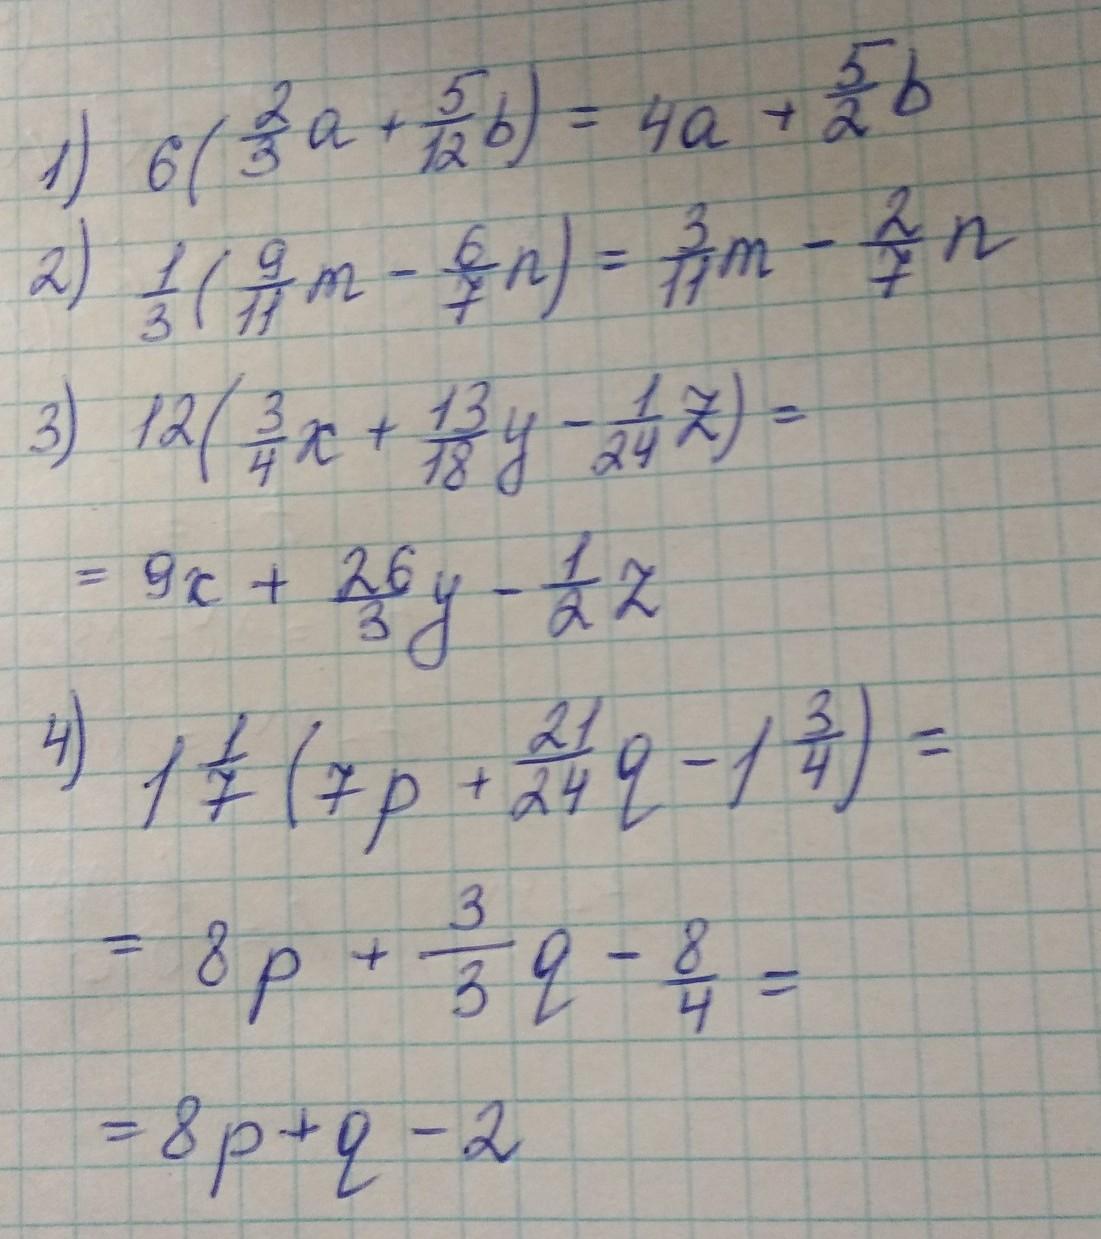 1) 6(2/3 a + 5/12 b) = 4a + 5/2 b
2) 1/3 (9/11 m - 6/7 n) = 3/11 m - 2/7 n
3) 12(3/4 x + 13/18 y - 1/24 z) =
= 9x + 26/3 y - 1/2 z
4) 1 1/7 (7p + 21/24 q - 1 3/4) =
= 8p + 3/3 q - 8/4 =
= 8p + q - 2